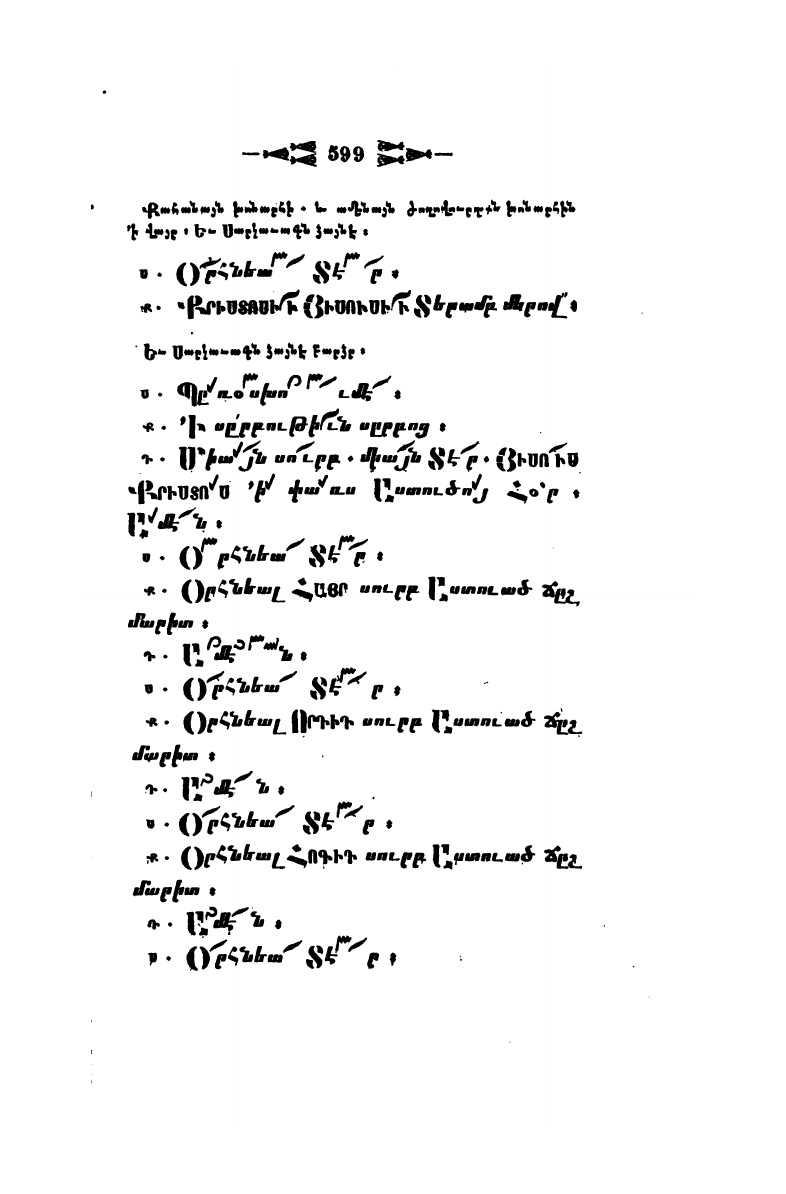 599
Քահանայն խոնարհի. և ամենայն ժողովուրդքն խոնարհին
՚ի վայր։ Եւ Սարկաւագն ձայնէ։
Ս. Օրհնեա Տէր։
Ք. ՔՐԻՍՏՈՍԻՒ ՅԻՍՈՒՍԻՒ Տերամբ մերով։
Եւ Սարկաւագն ձայնէ բարձր։
Ս. Պըռօսխումէ։
Ք. ՚Ի սըրբութիւն սըրբոց։
Դ. Միայն սուրբ. միայն Տէր. ՅԻՍՈՒՍ
ՔՐԻՍՏՈՍ ՚ի փառս Աստուծոյ Հօր։
Ամէն։
Ս. Օրհնեա Տէր։
Ք. Օրհնեալ ՀԱՅՐ սուրբ Աստուած ճըշ
մարիտ։
Դ. Ամէն։
Ս. Օրհնեա Տէր։
Ք. Օրհնեալ ՈՐԴԻԴ սուրբ Աստուած ճըշ
մարիտ։
Դ. Ամէն։
Ս. Օրհնեա Տէր։
Ք. Օրհնեալ ՀՈԳԻԴ սուրբ Աստուած ճըշ
մարիտ։
Դ. Ամէն։
Ս. Օրհնեա Տէր։